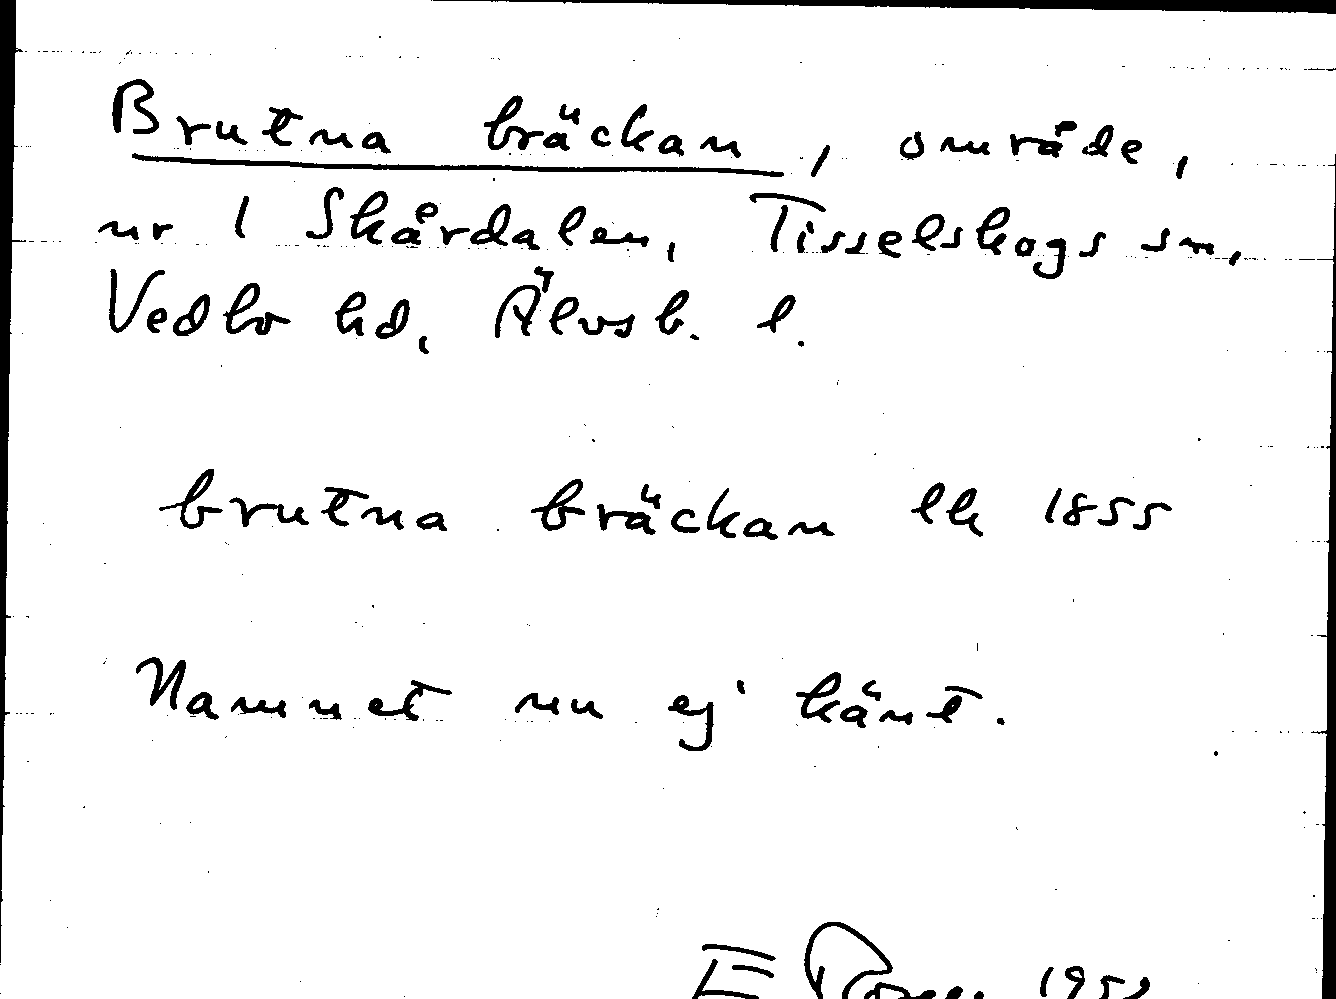 Brutna bräckan, område,
nr 1 Skårdalen, Tisselskogs sn,
Vedbo hd, Älvsb. l.
brutna bräckan lh 1855
Namnet nu ej känt.
E